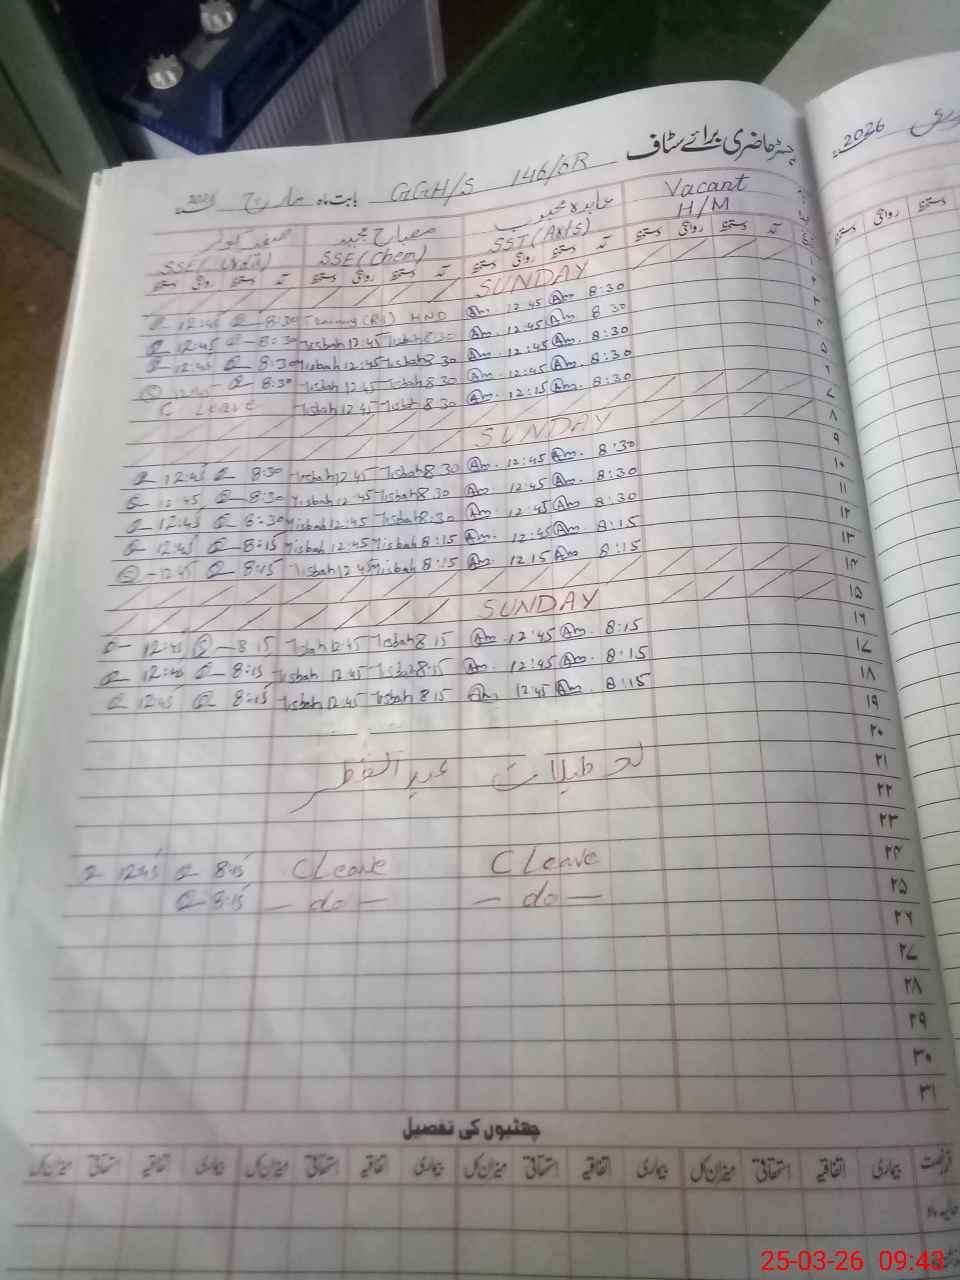 رجسٹر حاضری برائے سٹاف
GGH/S 146/6R بابت ماہ مارچ 2026
2026
Vacant
H/M
عابدہ مجید
SST (Arts)
مصباح مجید
SSE (Chem)
SSE (Urdu)
دستخط روانگی دستخط آمد دستخط روانگی دستخط آمد دستخط روانگی دستخط آمد دستخط روانگی دستخط آمد
۱ SUNDAY
۲ 12:45 8:30 Training (R1) HND Am. 12:45 Am 8:30
۳ 12:45 8:30 Misbah 12:45 Misbah 8:30 Am. 12:45 Am. 8 30
۴ 12:45 8:30 Misbah 12:45 Misbah 8.30 Am. 12:45 Am. 8:30
۵ 8:30 Misbah 12 45 Misbah 8:30 Am. 12:45 Am. 8:30
۶ C Leave Misbah 12 45 Misbah 8:30 Am. 12:15 Am. 8:30
۷
۸ SUNDAY
۹ 12:45 8:30 Misbah 12:45 Misbah 8.30 Am. 12:45 Am. 8:30
۱۰ 12 45 8:30 Misbah 12:45 Misbah 8.30 Am. 12:45 Am. 8:30
۱۱ 12:45 8:30 Misbah 12:45 Misbah 8:30 Am. 12:45 Am. 8:30
۱۲ 12:45 8:15 Misbah 12:45 Misbah 8:15 Am. 12:45 Am. 8:15
۱۳ 12:45 8:15 Misbah 12 45 Misbah 8:15 Am. 12.15 Am 8:15
۱۴
۱۵ SUNDAY
۱۶ 12:45 8 15 Misbah 12:45 Misbah 8.15 Am. 12:45 Am. 8:15
۱۷ 12:45 8:15 Misbah 12 45 Misbah 8:15 Am. 12:45 Am. 8:15
۱۸ 12:45 8:15 Misbah 12.45 Misbah 8 15 Am. 12 45 Am. 8:15
۱۹
۲۰
۲۱ تعطیلات عید الفطر
۲۲
۲۳
۲۴ 12:45 8:15 C Leave C Leave
۲۵ 8:15 — do — — do —
۲۶
۲۷
۲۸
۲۹
۳۰
۳۱
چھٹیوں کی تفصیل
بیماری اتفاقیہ استحقاقی میزان کل بیماری اتفاقیہ استحقاقی میزان کل بیماری اتفاقیہ استحقاقی میزان کل بیماری اتفاقیہ استحقاقی میزان کل
25-03-26 09:43